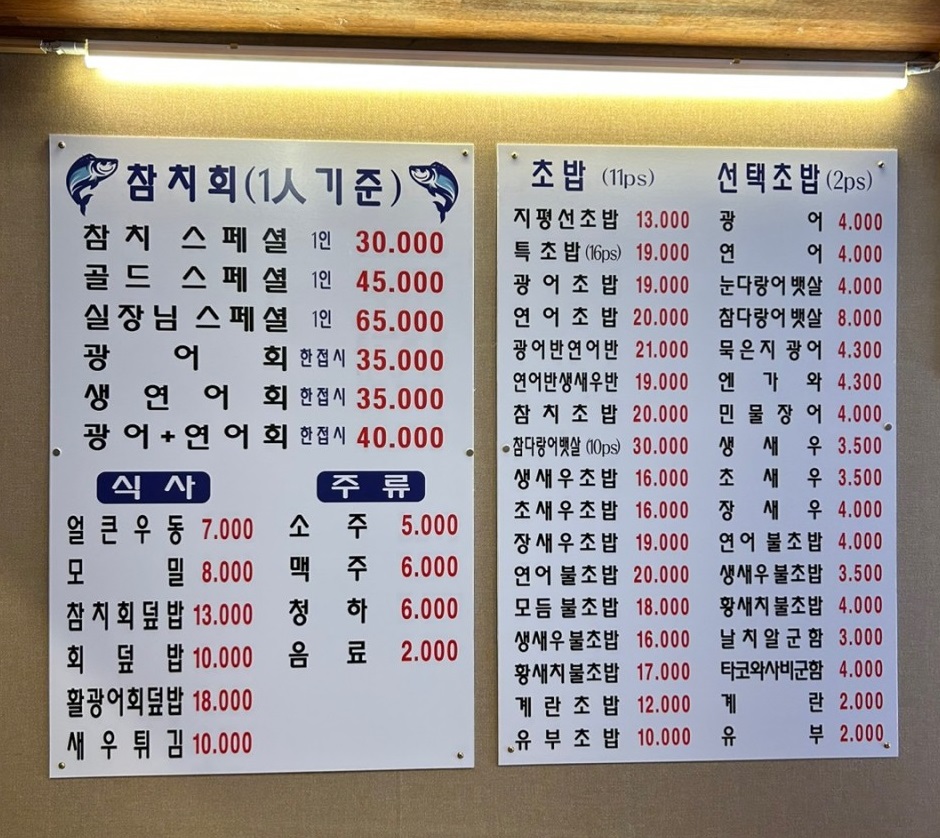 참치회(1人 기준)
참치 스페셜 1인 30.000
골드 스페셜 1인 45.000
실장님스페셜 1인 65.000
광어회 한접시 35.000
생연어회 한접시 35.000
광어+연어회 한접시 40.000
식사
얼큰우동 7.000
모밀 8.000
참치회덮밥 13.000
회덮밥 10.000
활광어회덮밥 18.000
새우튀김 10.000
주류
소주 5.000
맥주 6.000
청하 6.000
음료 2.000
초밥 (11ps)
지평선초밥 13.000
특초밥(16ps) 19.000
광어초밥 19.000
연어초밥 20.000
광어반연어반 21.000
연어반생새우반 19.000
참치초밥 20.000
참다랑어뱃살 (10ps) 30.000
생새우초밥 16.000
초새우초밥 16.000
장새우초밥 19.000
연어 불초밥 20.000
모듬 불초밥 18.000
생새우불초밥 16.000
황새치불초밥 17.000
계란초밥 12.000
유부초밥 10.000
선택초밥(2ps)
광어 4.000
연어 4.000
눈다랑어뱃살 4.000
참다랑어뱃살 8.000
묵은지광어 4.300
엔가와 4.300
민물장어 4.000
생새우 3.500
초새우 3.500
장새우 4.000
연어 불초밥 4.000
생새우불초밥 3.500
황새치불초밥 4.000
날치알군함 3.000
타코와사비군함 4.000
계란 2.000
유부 2.000